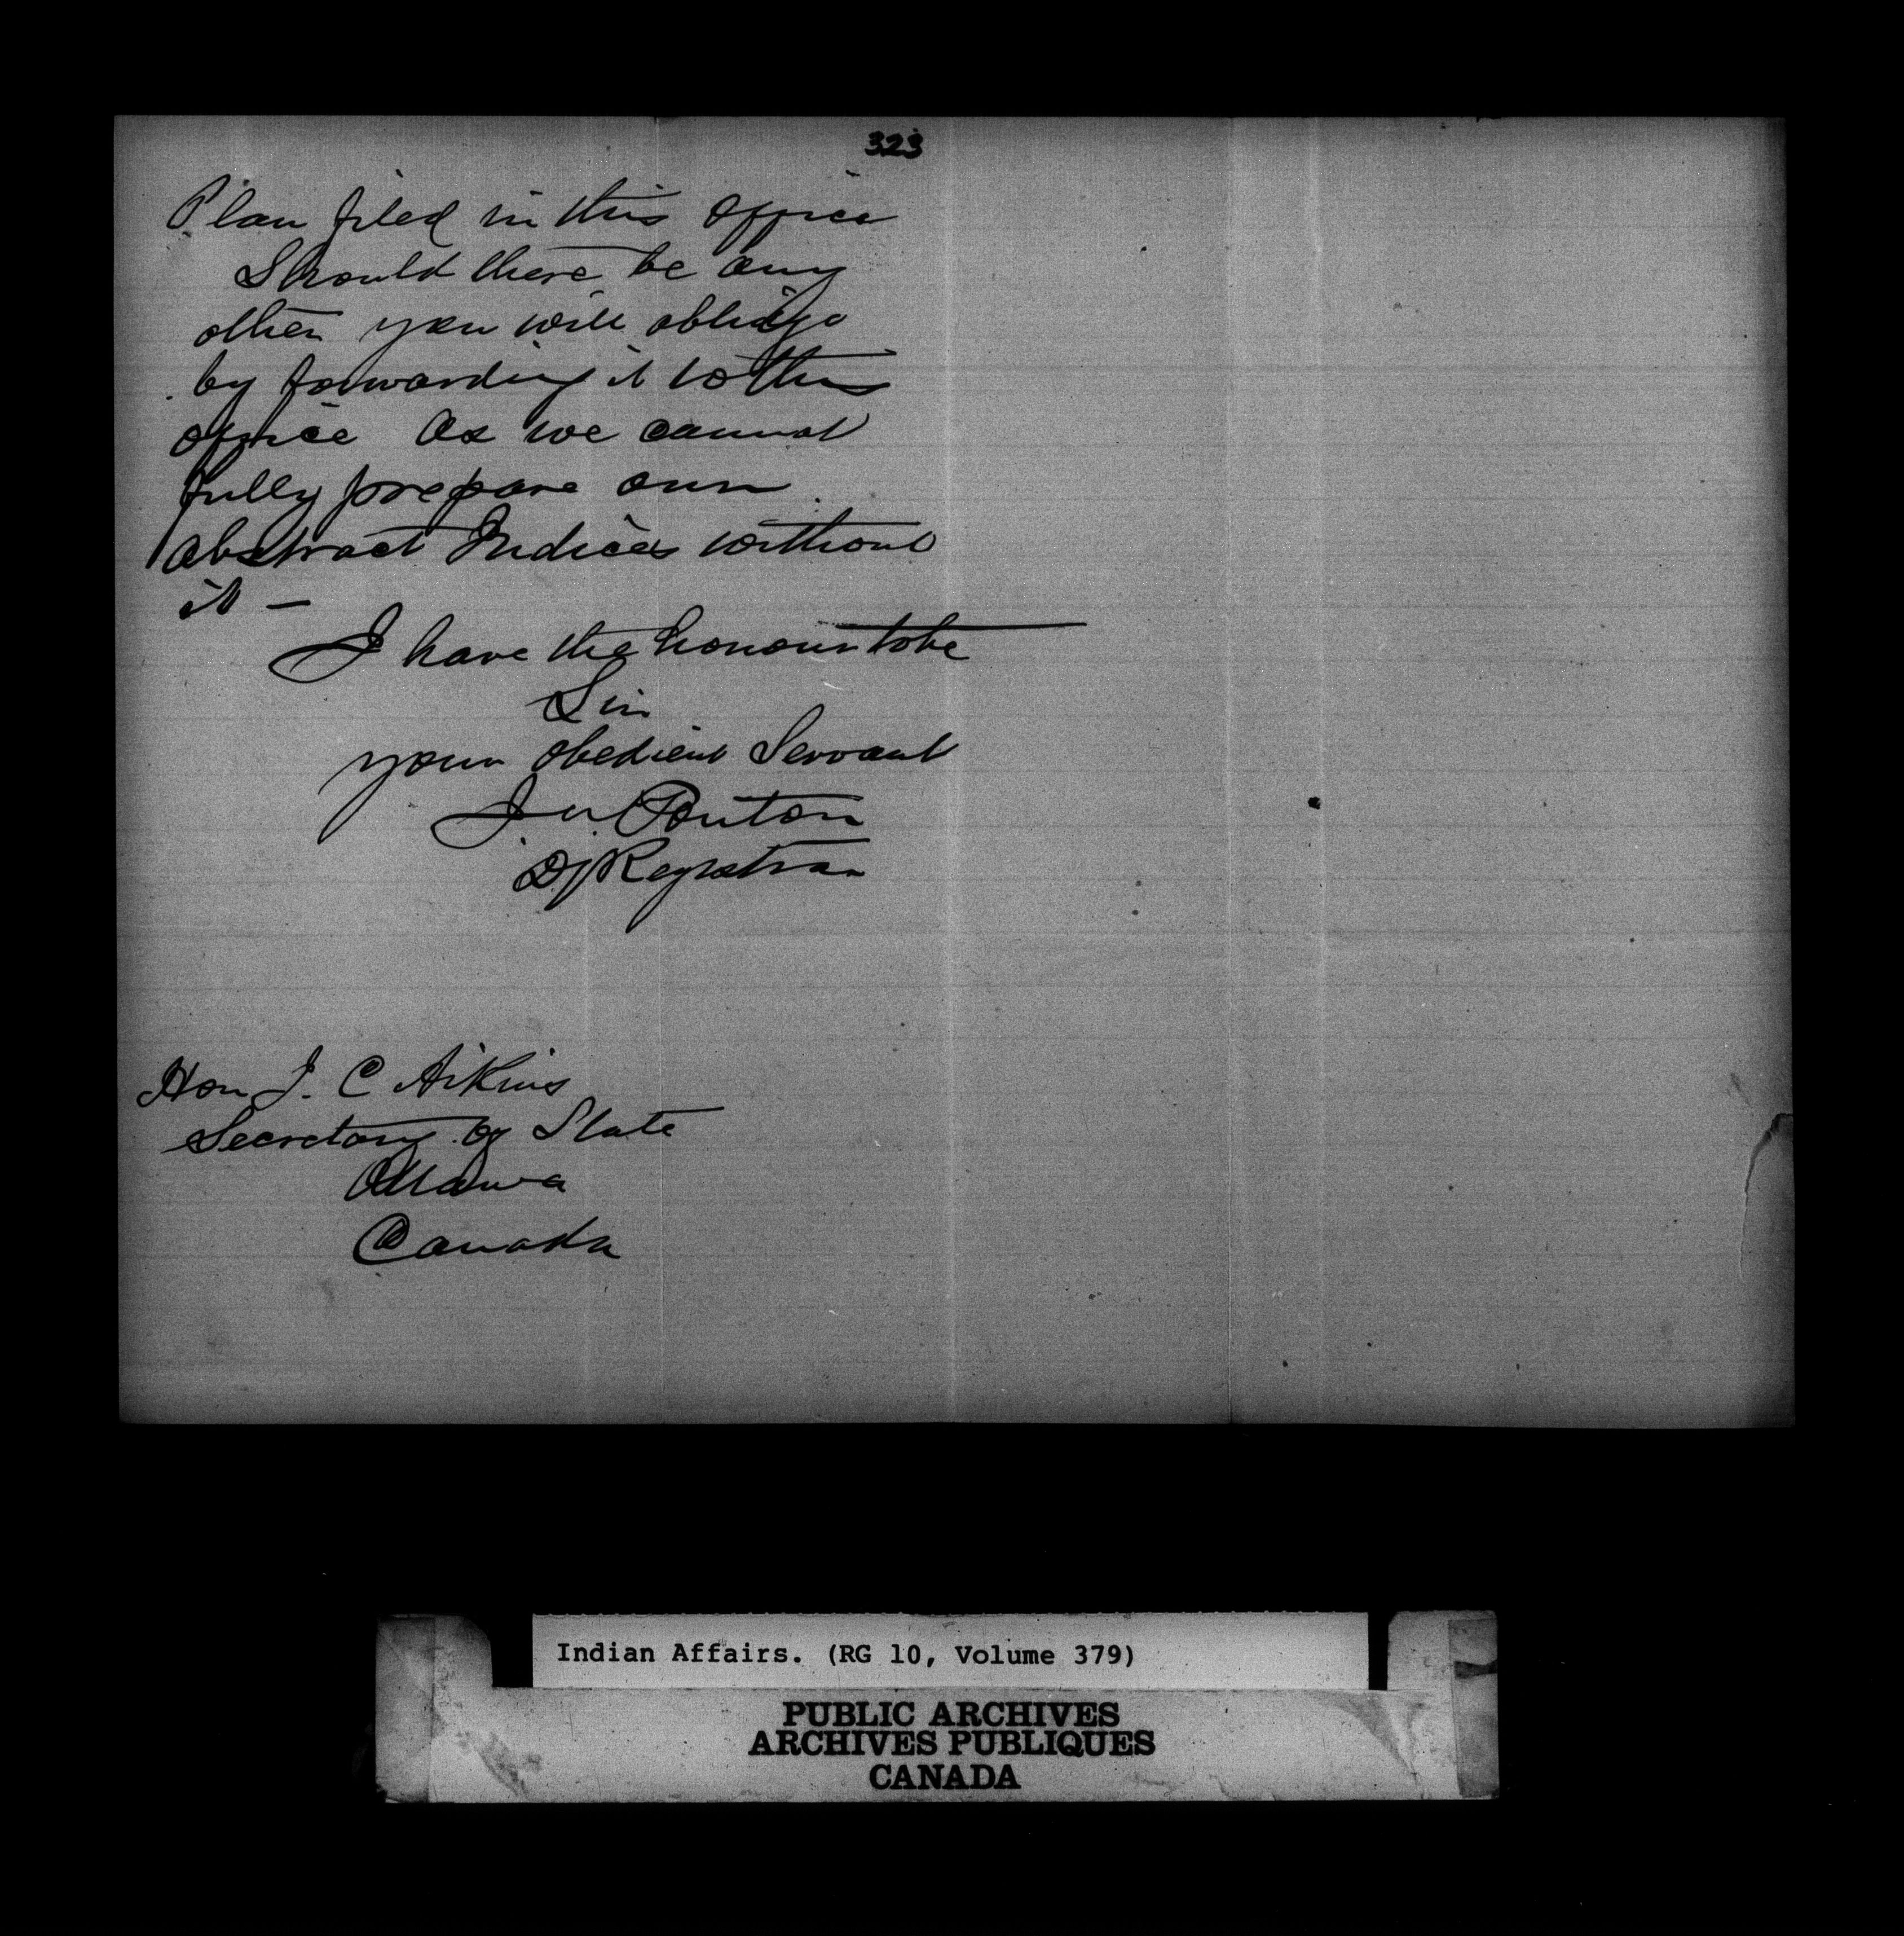 323
Plan filed in this office
Should there be any
other you will oblidge
by forwarding it to this
office as we cannot
fully prepare our
Abstract Indices without
it —
I have the honour to be
Sir
your obedient Servant
J W Ponton
Dy Registrar
Hon J. C Aikins
Secretary of State
Ottawa
Canada
Indian Affairs. (RG 10, Volume 379)
PUBLIC ARCHIVES
ARCHIVES PUBLIQUES
CANADA